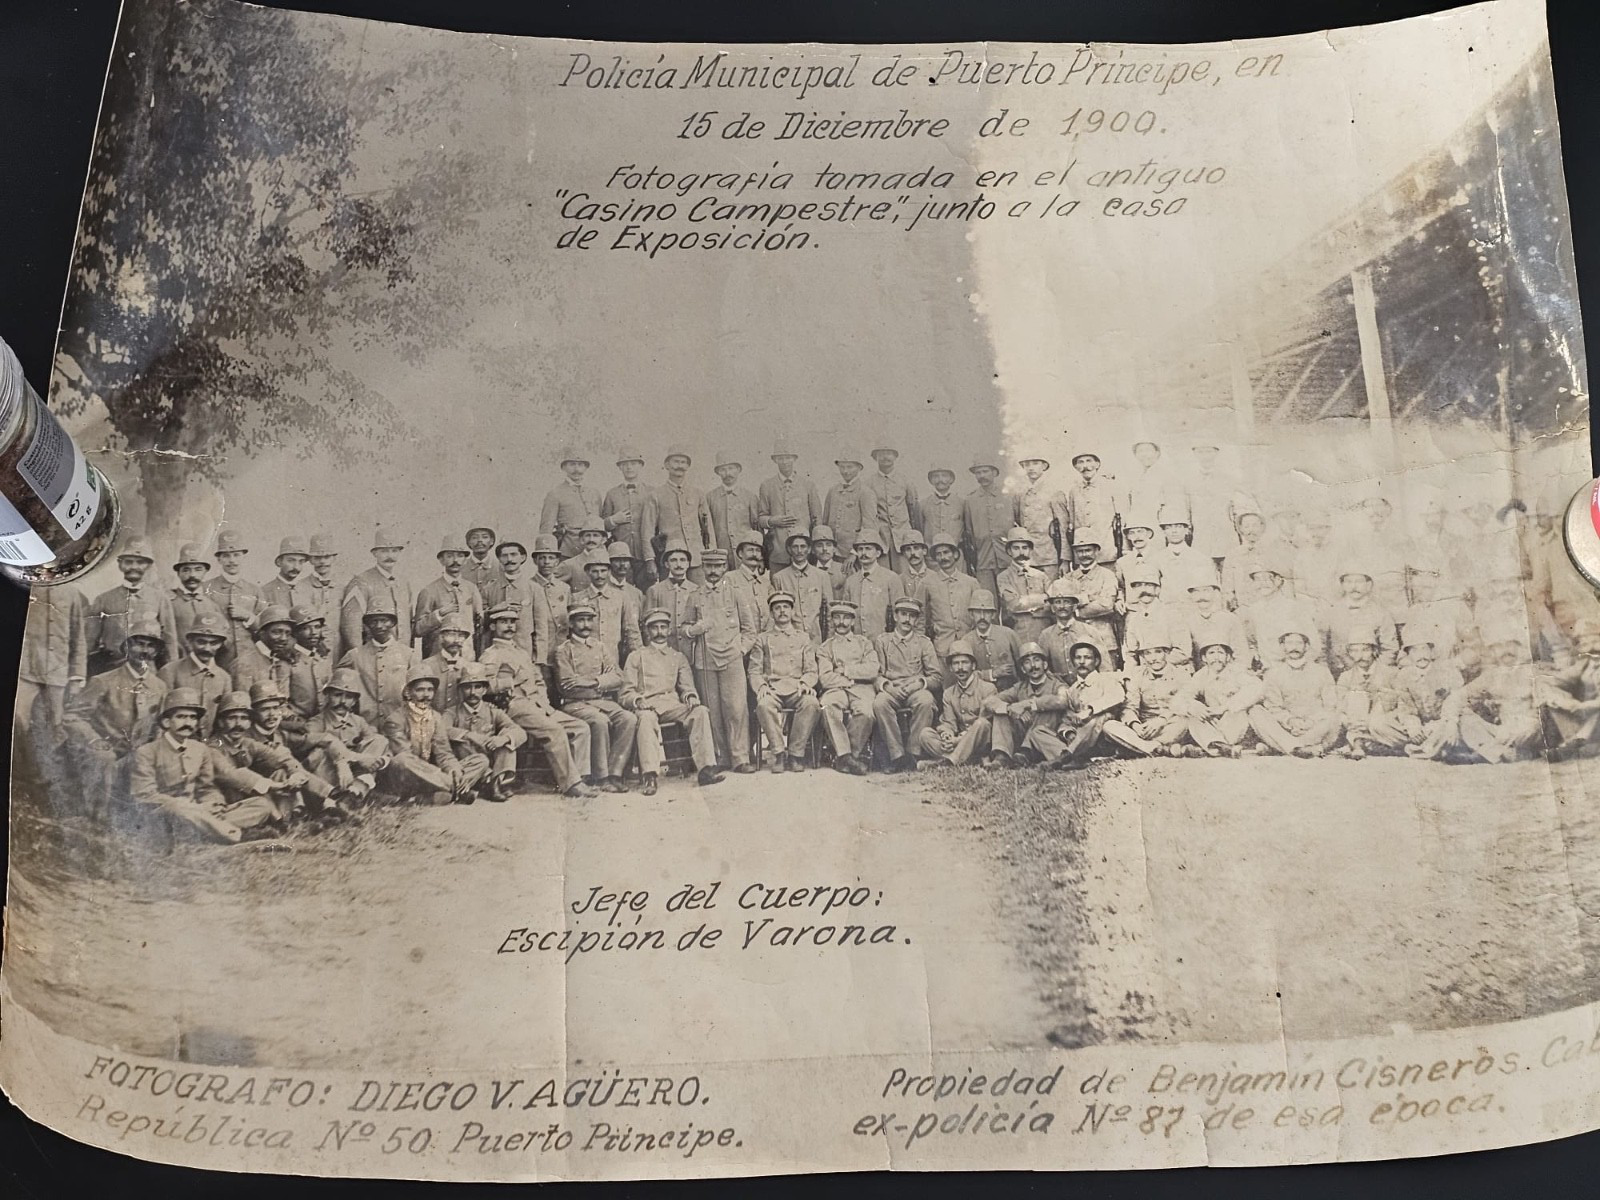 Policía Municipal de Puerto Príncipe, en
15 de Diciembre de 1,900.
Fotografía tomada en el antiguo
"Casino Campestre," junto a la casa
de Exposición.
Jefe del Cuerpo:
Escipión de Varona.
FOTOGRAFO: DIEGO V. AGÜERO.
República Nº 50 Puerto Príncipe.
Propiedad de Benjamín Cisneros.
ex-policía Nº 87 de esa época.
42 g